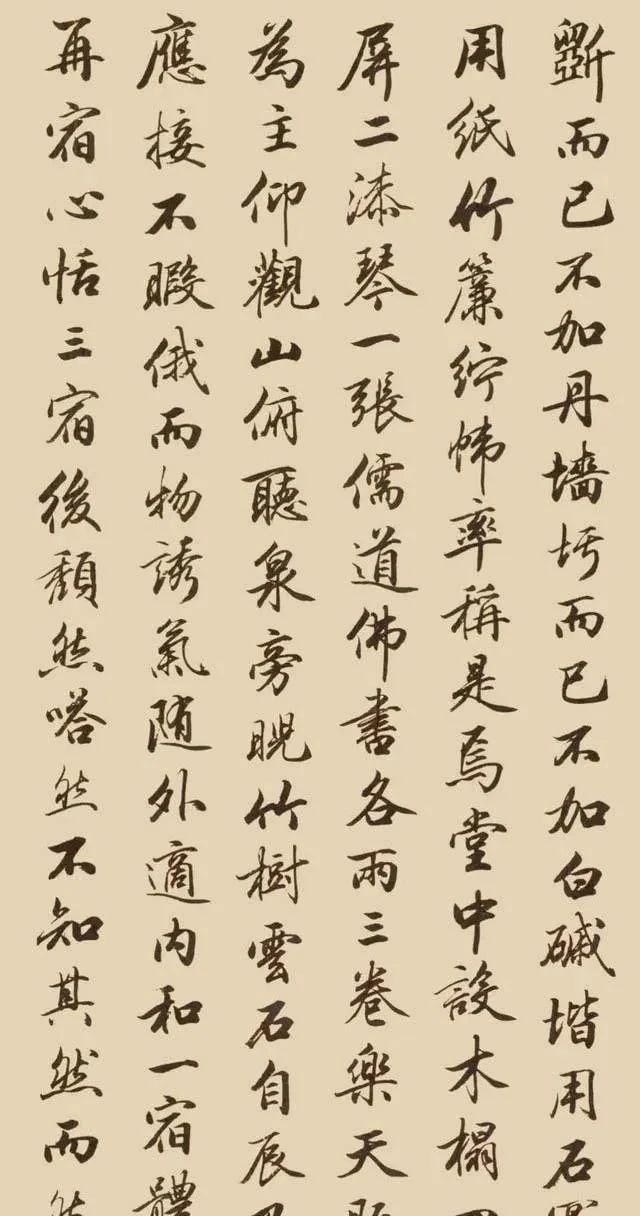 斵而已不加丹墻圬而已不加白碱堦用石
用紙竹簾紵幃率稱是焉堂中設木榻
屏二漆琴一張儒道佛書各兩三卷樂天
為主仰觀山俯聽泉旁睨竹樹雲石自辰
應接不暇俄而物誘氣随外適內和一宿體
再宿心恬三宿後頹然嗒然不知其然而然